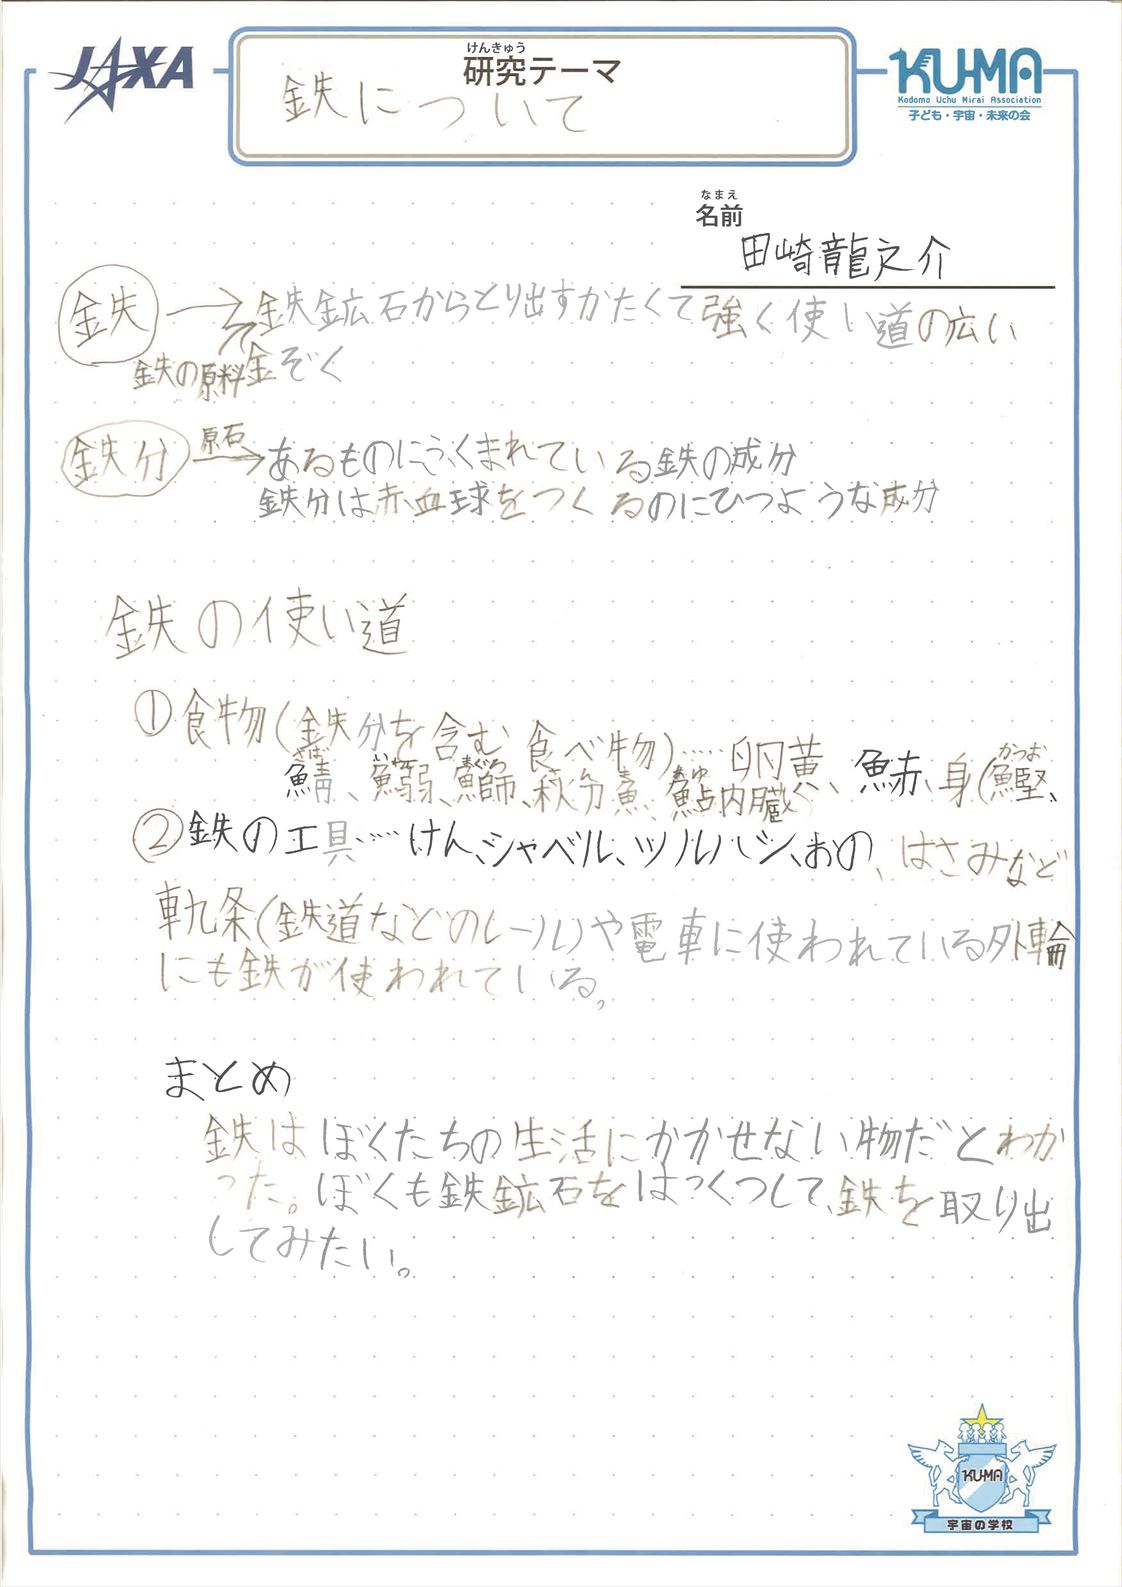 JAXA
けんきゅう
研究テーマ
鉄について
KU-MA
Kodomo Uchu Mirai Association
子ども・宇宙・未来の会
なまえ
名前
田崎龍之介
鉄 → 鉄鉱石からとり出すかたくて強く使い道の広い
鉄の原料 金ぞく
鉄分 原石→ あるものにふくまれている鉄の成分
鉄分は赤血球をつくるのにひつような成分
鉄の使い道
①食物(鉄分を含む食べ物)……卵黄、魚赤、身(鰹、
かつお
さば いわし まぐろ あゆ
鯖、鰯、鰤、秋分魚、鮎内臓)
②鉄の工具……けん、シャベル、ツルハシ、おの、はさみなど
軌条(鉄道などのレール)や電車に使われている外輪
にも鉄が使われている。
まとめ
鉄はぼくたちの生活にかかせない物だとわか
った。ぼくも鉄鉱石をはっくつして、鉄を取り出
してみたい。
KU-MA
宇宙の学校